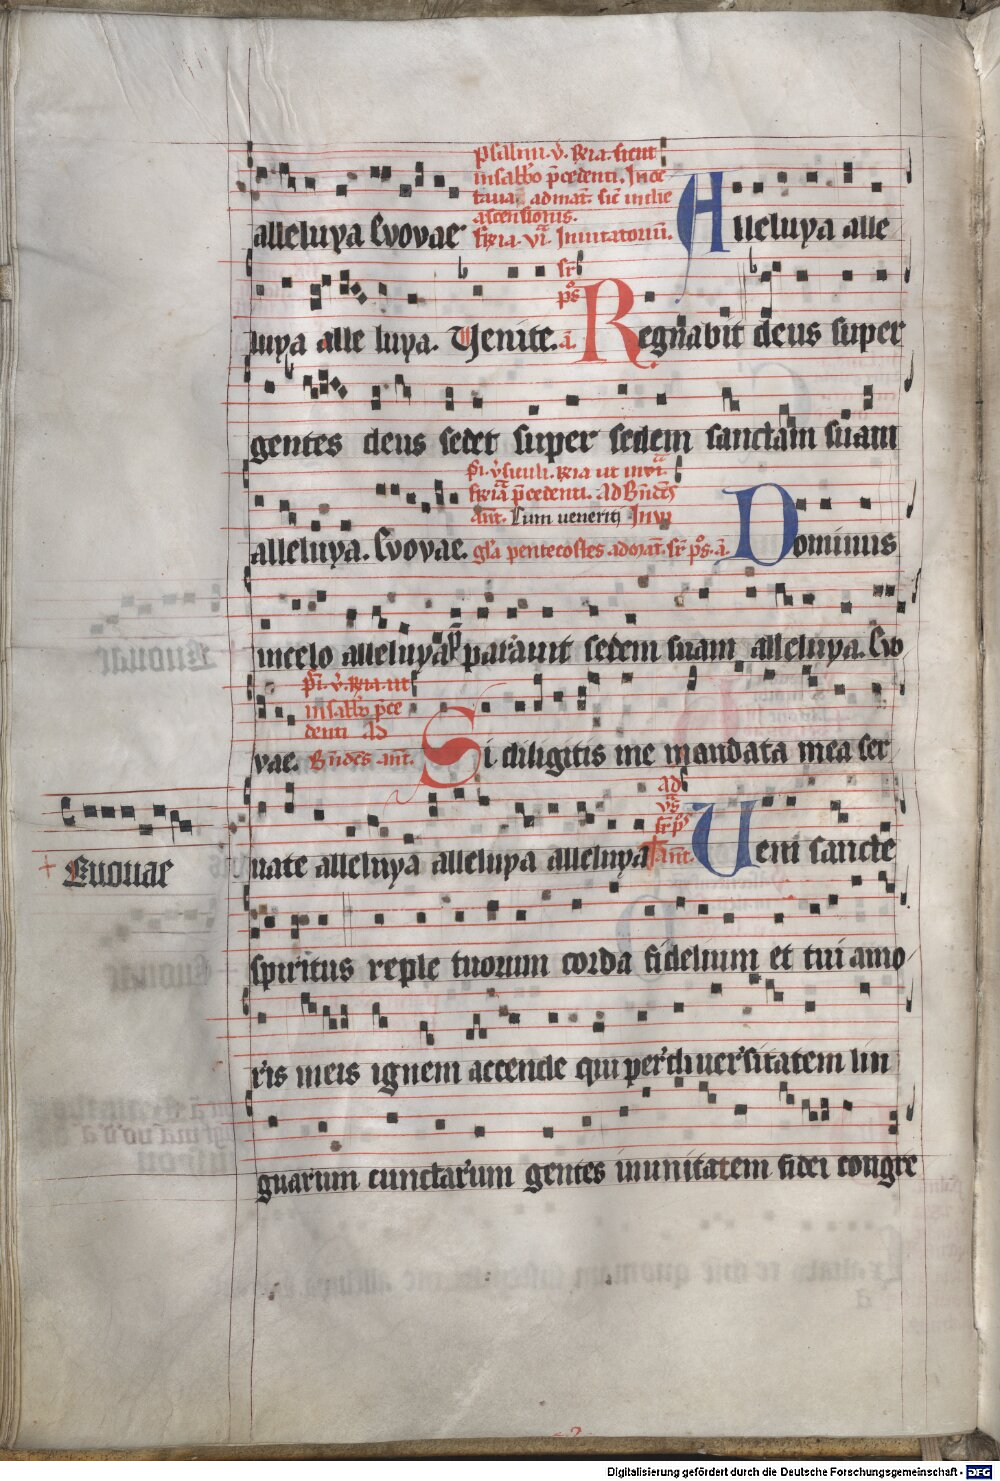 psalmi. v̄. R̄ia. sicut
in sabb̄o p̄cedenti. In oc
taua. ad mat̄. sic̄ in die
ascensionis.
f̄ia. vī. Inuitatoriū.
alleluya Evovae
Alleluya alle
luya alle luya. Venite. sr̄ p̄s ā. Regnavit deus super
gentes deus sedet super sedem sanctam suam
alleluya. Evovae.
p̄cedenti. Ad Bn̄dc̄s
ant̄. Cum venerit In vi
gl̄a pentecostes ad mat̄. sr̄ p̄s. ā. Dominus
in celo alleluya parauit sedem suam alleluya. Evo
in sabb̄o p̄ce
denti Ad
vae. Bn̄dc̄s ant̄. Si diligitis me mandata mea ser
ad
vs̄
sr̄ p̄s
uate alleluya alleluya alleluya ant̄. Veni sancte
Euouae
spiritus reple tuorum corda fidelium et tui amo
ris in eis ignem accende qui per diuersitatem lin
guarum cunctarum gentes in unitatem fidei congre
Digitalisierung gefördert durch die Deutsche Forschungsgemeinschaft - DFG